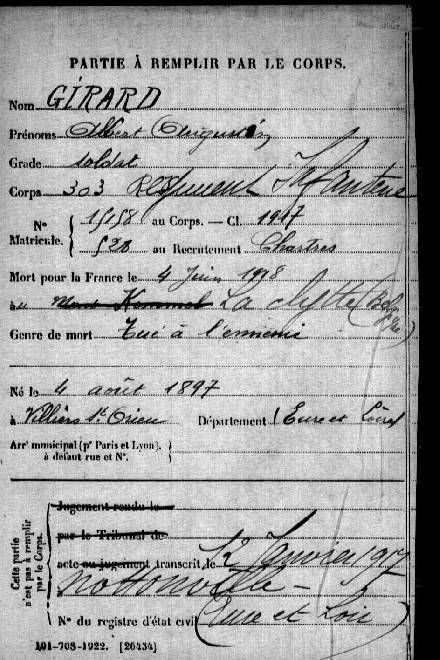 PARTIE À REMPLIR PAR LE CORPS.
Nom GIRARD
Prénoms Albert Augustin
Grade soldat
Corps 303 Régiment Infanterie
Nos Matricule. { 15158 au Corps. — Cl. 1917
528 au Recrutement Chartres
Mort pour la France le 4 Juin 1918
à au Mont Kemmel La Clytte (Belgique)
Genre de mort Tué à l'ennemi
Né le 4 août 1897
à Villiers St Orien Département (Eure et Loir)
Arrt municipal (pr Paris et Lyon), à défaut rue et N°.
Cette partie n'est pas à remplir par le Corps.
Jugement rendu le
par le Tribunal de
acte ou jugement transcrit le 12 Janvier
Nottonville –
N° du registre d'état civil (Eure et Loir)
101-708-1922. [26434]